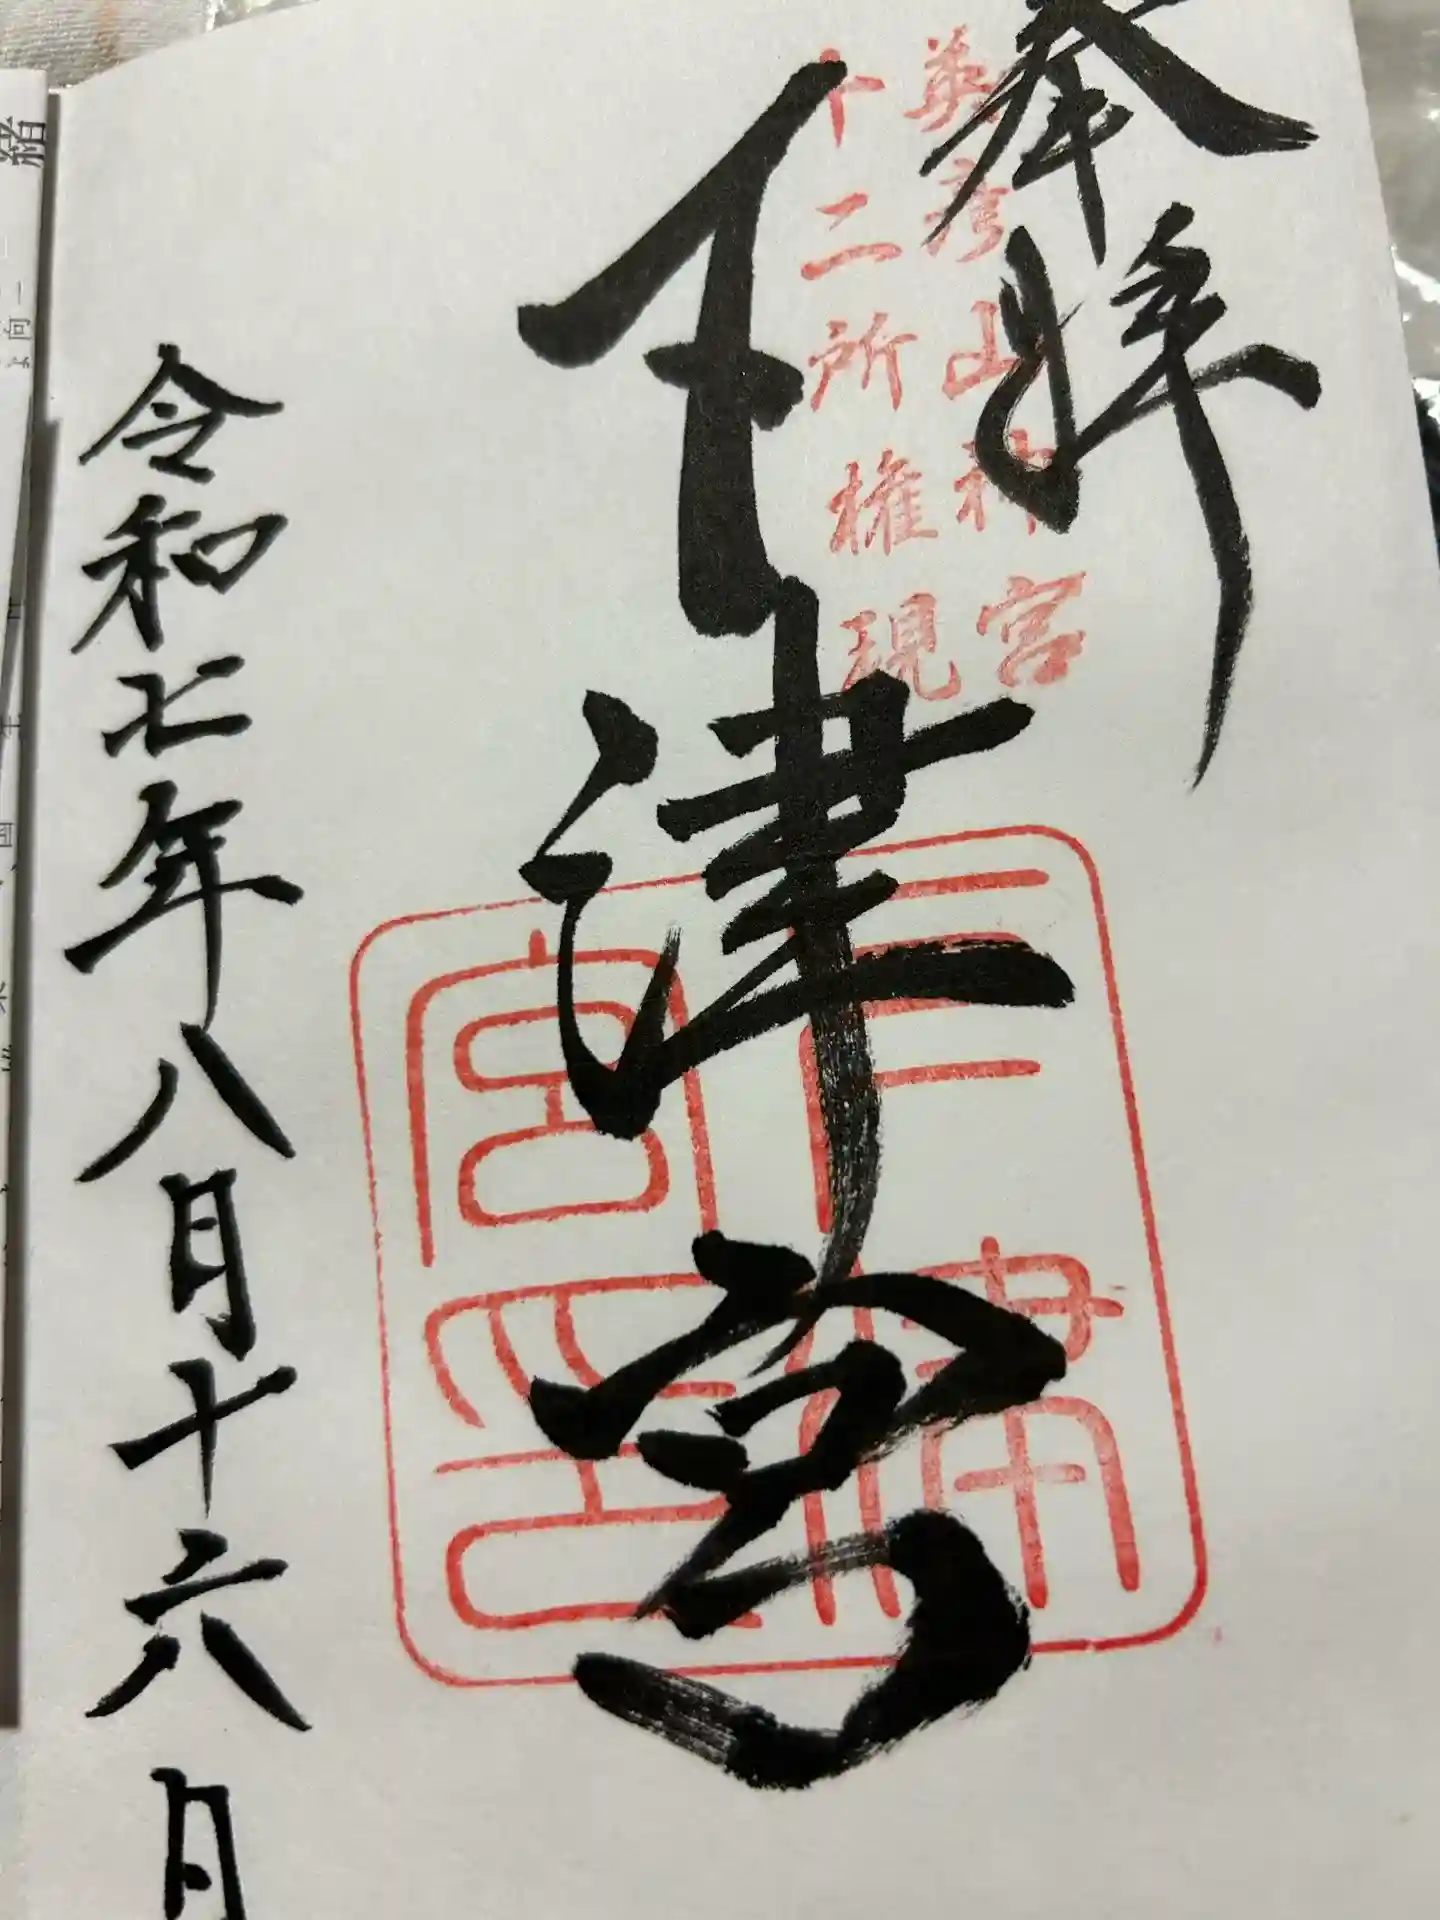 奉拝
英彦山神宮
十二所権現
下津宮
令和七年八月十六日
緒